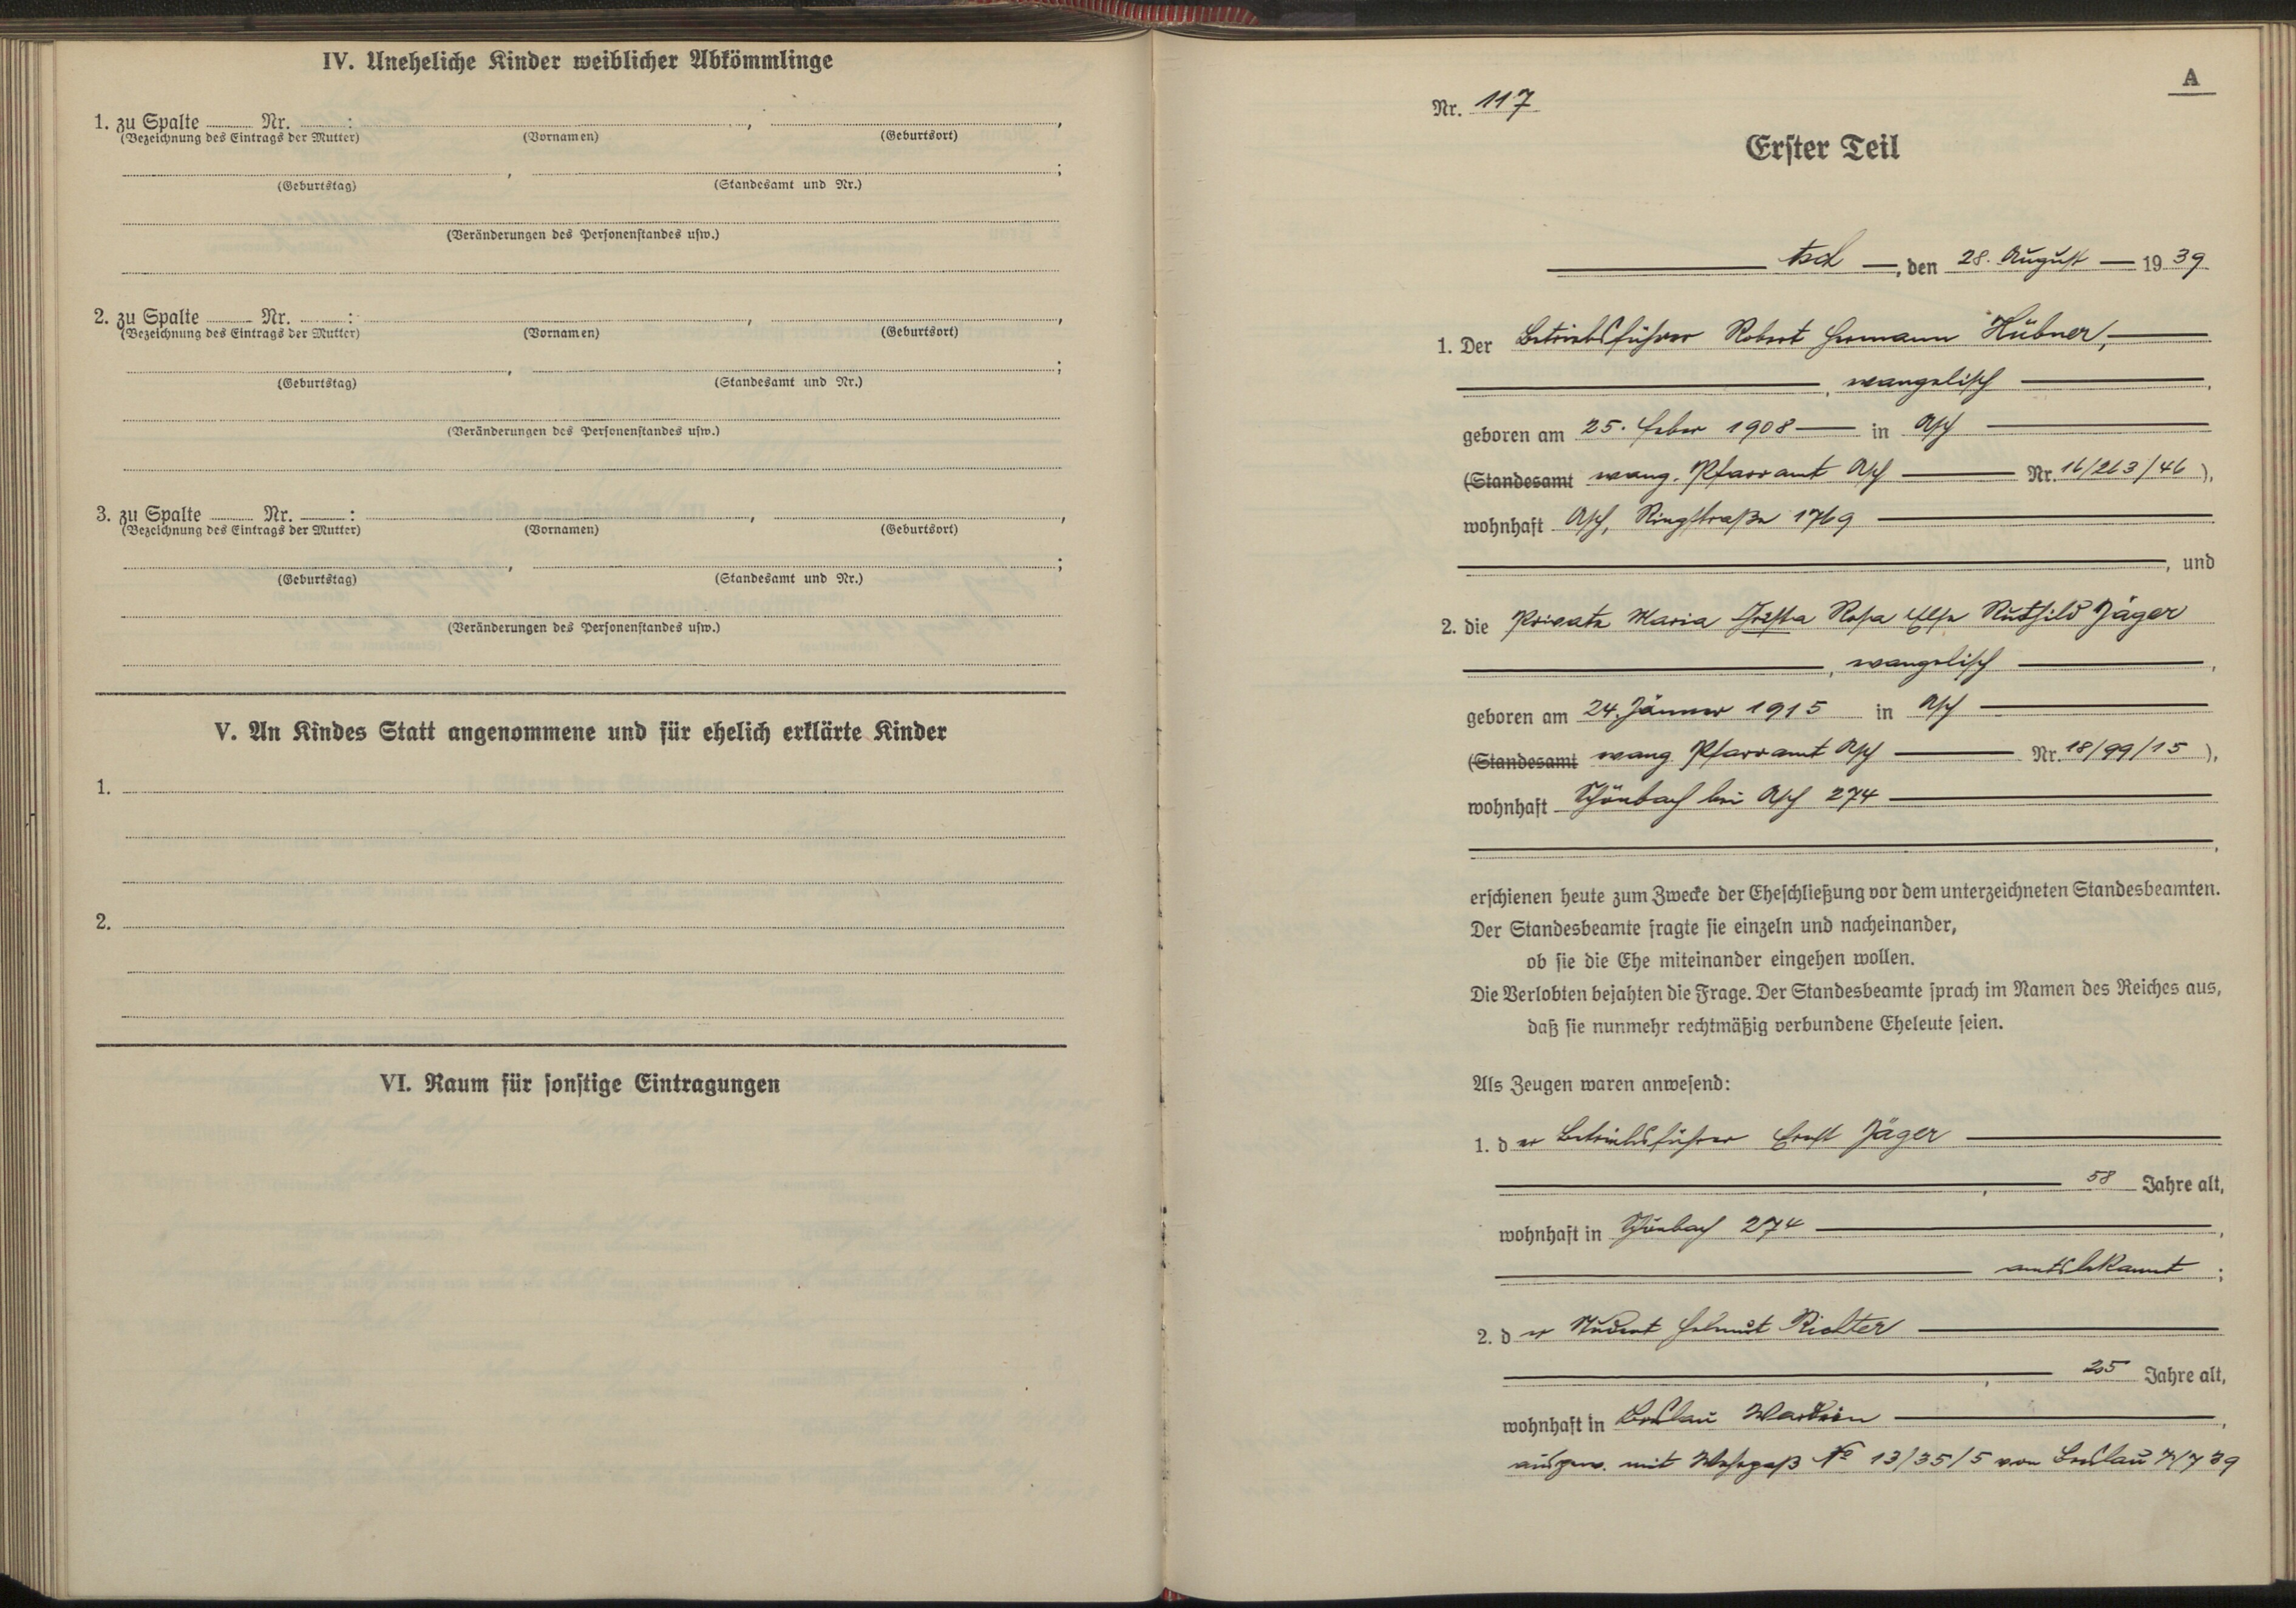 IV. Uneheliche Kinder weiblicher Abkömmlinge
1. zu Spalte ........ Nr. ........ :
(Bezeichnung des Eintrags der Mutter) (Vornamen) (Geburtsort)
(Geburtstag) (Standesamt und Nr.)
(Veränderungen des Personenstandes usw.)
2. zu Spalte ........ Nr. ........ :
(Bezeichnung des Eintrags der Mutter) (Vornamen) (Geburtsort)
(Geburtstag) (Standesamt und Nr.)
(Veränderungen des Personenstandes usw.)
3. zu Spalte ........ Nr. ........ :
(Bezeichnung des Eintrags der Mutter) (Vornamen) (Geburtsort)
(Geburtstag) (Standesamt und Nr.)
(Veränderungen des Personenstandes usw.)
V. An Kindes Statt angenommene und für ehelich erklärte Kinder
1.
2.
VI. Raum für sonstige Eintragungen
A
Nr. 117
Erster Teil
Asch, den 28. August 1939
1. Der Betriebsführer Robert Hermann Hübner,
, evangelisch,
geboren am 25. Feber 1908 in Asch
(Standesamt evang. Pfarramt Asch Nr. 16/263/46),
wohnhaft Asch, Ringstraße 1769
, und
2. die Private Maria Rosa Else Ruthild Jäger
, evangelisch,
geboren am 24. Jänner 1915 in Asch
(Standesamt evang. Pfarramt Asch Nr. 18/99/15),
wohnhaft Schönbach bei Asch 274
erschienen heute zum Zwecke der Eheschließung vor dem unterzeichneten Standesbeamten.
Der Standesbeamte fragte sie einzeln und nacheinander,
ob sie die Ehe miteinander eingehen wollen.
Die Verlobten bejahten die Frage. Der Standesbeamte sprach im Namen des Reiches aus,
daß sie nunmehr rechtmäßig verbundene Eheleute seien.
Als Zeugen waren anwesend:
1. der Betriebsführer Ernst Jäger
, 58 Jahre alt,
wohnhaft in Schönbach 274,
amtsbekannt;
2. der Student Helmut Richter
, 25 Jahre alt,
wohnhaft in Breslau,
ausgew. mit Wehrpaß No 13/35/5 von Breslau 7/7 39